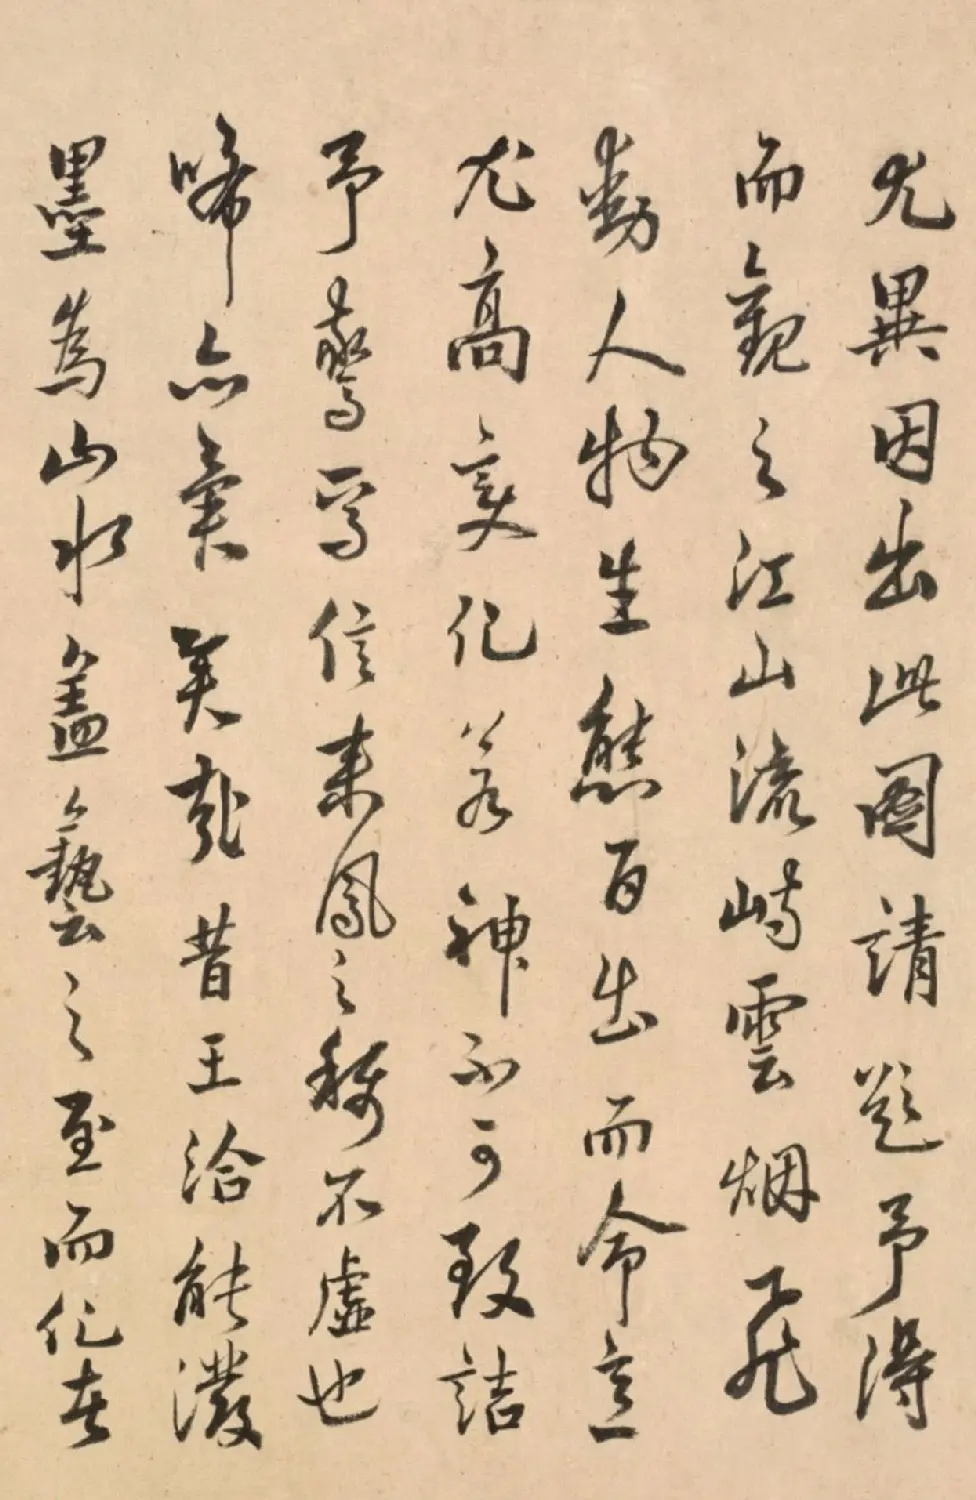 尤異因出此圖請題予得
而觀之江山流峙雲烟飛
動人物生態百出而命意
尤高變化若神不可致詰
予驚焉信來鳳之稱不虛也
唏亦奧矣哉昔王洽能潑
墨為山水蓋藝之至而化在